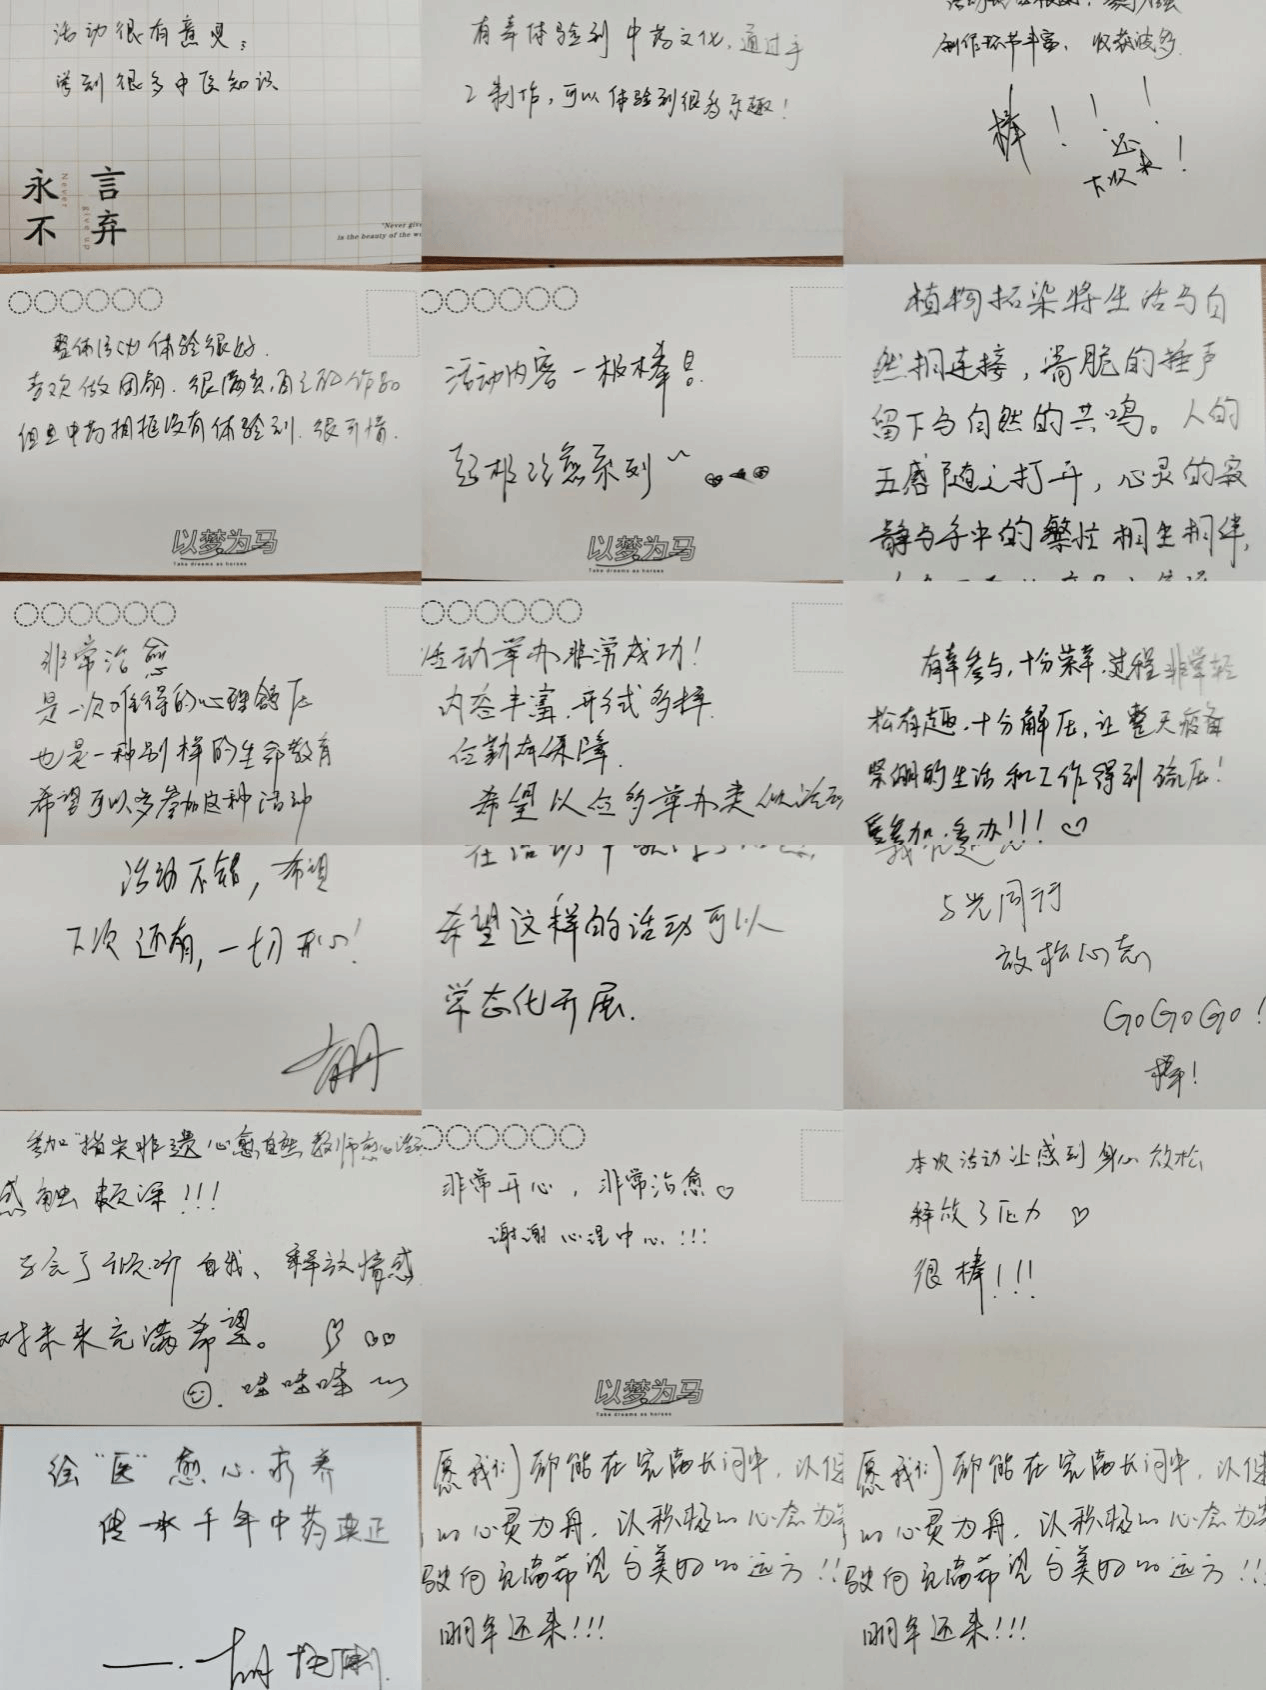 活动很有意思；
学到很多中医知识
永不言弃
Never give up
"Never give
is the beauty of the wo
有幸体验到中药文化，通过手
工制作，可以体验到很多乐趣！
制作环节丰富，收获颇多
棒！！！
下次还来！
整体活动体验很好.
喜欢做团扇.很满意自己的作品
但是中药相框没有体验到.很可惜.
以梦为马
Take dreams as horses
活动内容一级棒！
超级治愈系列~
以梦为马
Take dreams as horses
植物拓染将生活与自
然相连接，清脆的锤声
留下与自然的共鸣。人的
五感随之打开，心灵的寂
静与手中的繁忙相生相伴，
非常治愈
是一次难得的心理舒压
也是一种别样的生命教育
希望可以多参加这种活动
活动举办非常成功！
内容丰富.形式多样.
后勤有保障.
希望以后多举办类似活动
有幸参与，十分荣幸.过程非常轻
松有趣.十分解压，让整天疲惫
紧绷的生活和工作得到疏压！
要多办!!! ♡
活动不错，希望
下次还有，一切开心！
希望这样的活动可以
常态化开展.
与光同行
放松心态
GoGoGo！
棒！
参加"指尖非遗 心愈自然"教师愈心活动
感触颇深！！！
学会了倾听自我、释放情感
对未来充满希望。
哇哇哇~
非常开心，非常治愈♡
谢谢心理中心！！！
以梦为马
Take dreams as horses
本次活动让感到身心放松
释放了压力 ♡
很棒！！！
绘"医"愈心素养
传承千年中药真正
愿我们都能在宽阔长河中，以健
的心灵为舟，以积极的心态为
驶向充满希望与美好的远方!!
明年还来!!!
愿我们都能在宽阔长河中，以健
的心灵为舟，以积极的心态为
驶向充满希望与美好的远方!!
明年还来!!!